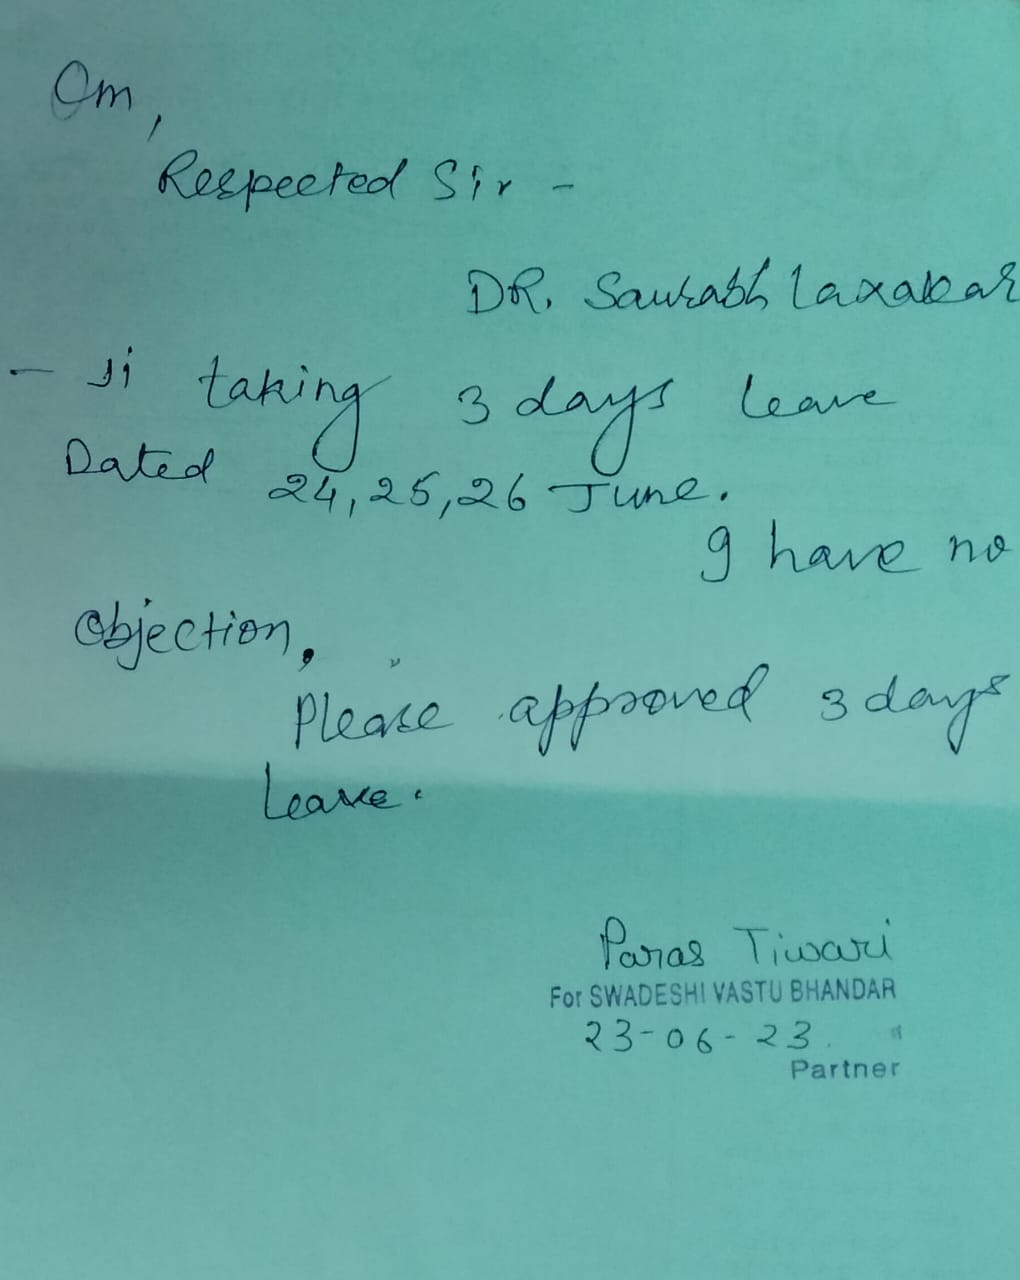 Om,
Respected Sir -
DR. Saurabh Laxakar
- Ji taking 3 days leave
Dated 24, 25, 26 June.
I have no
objection,
Please approved 3 days
Leave.
Paras Tiwari
For SWADESHI VASTU BHANDAR
23-06-23.
Partner